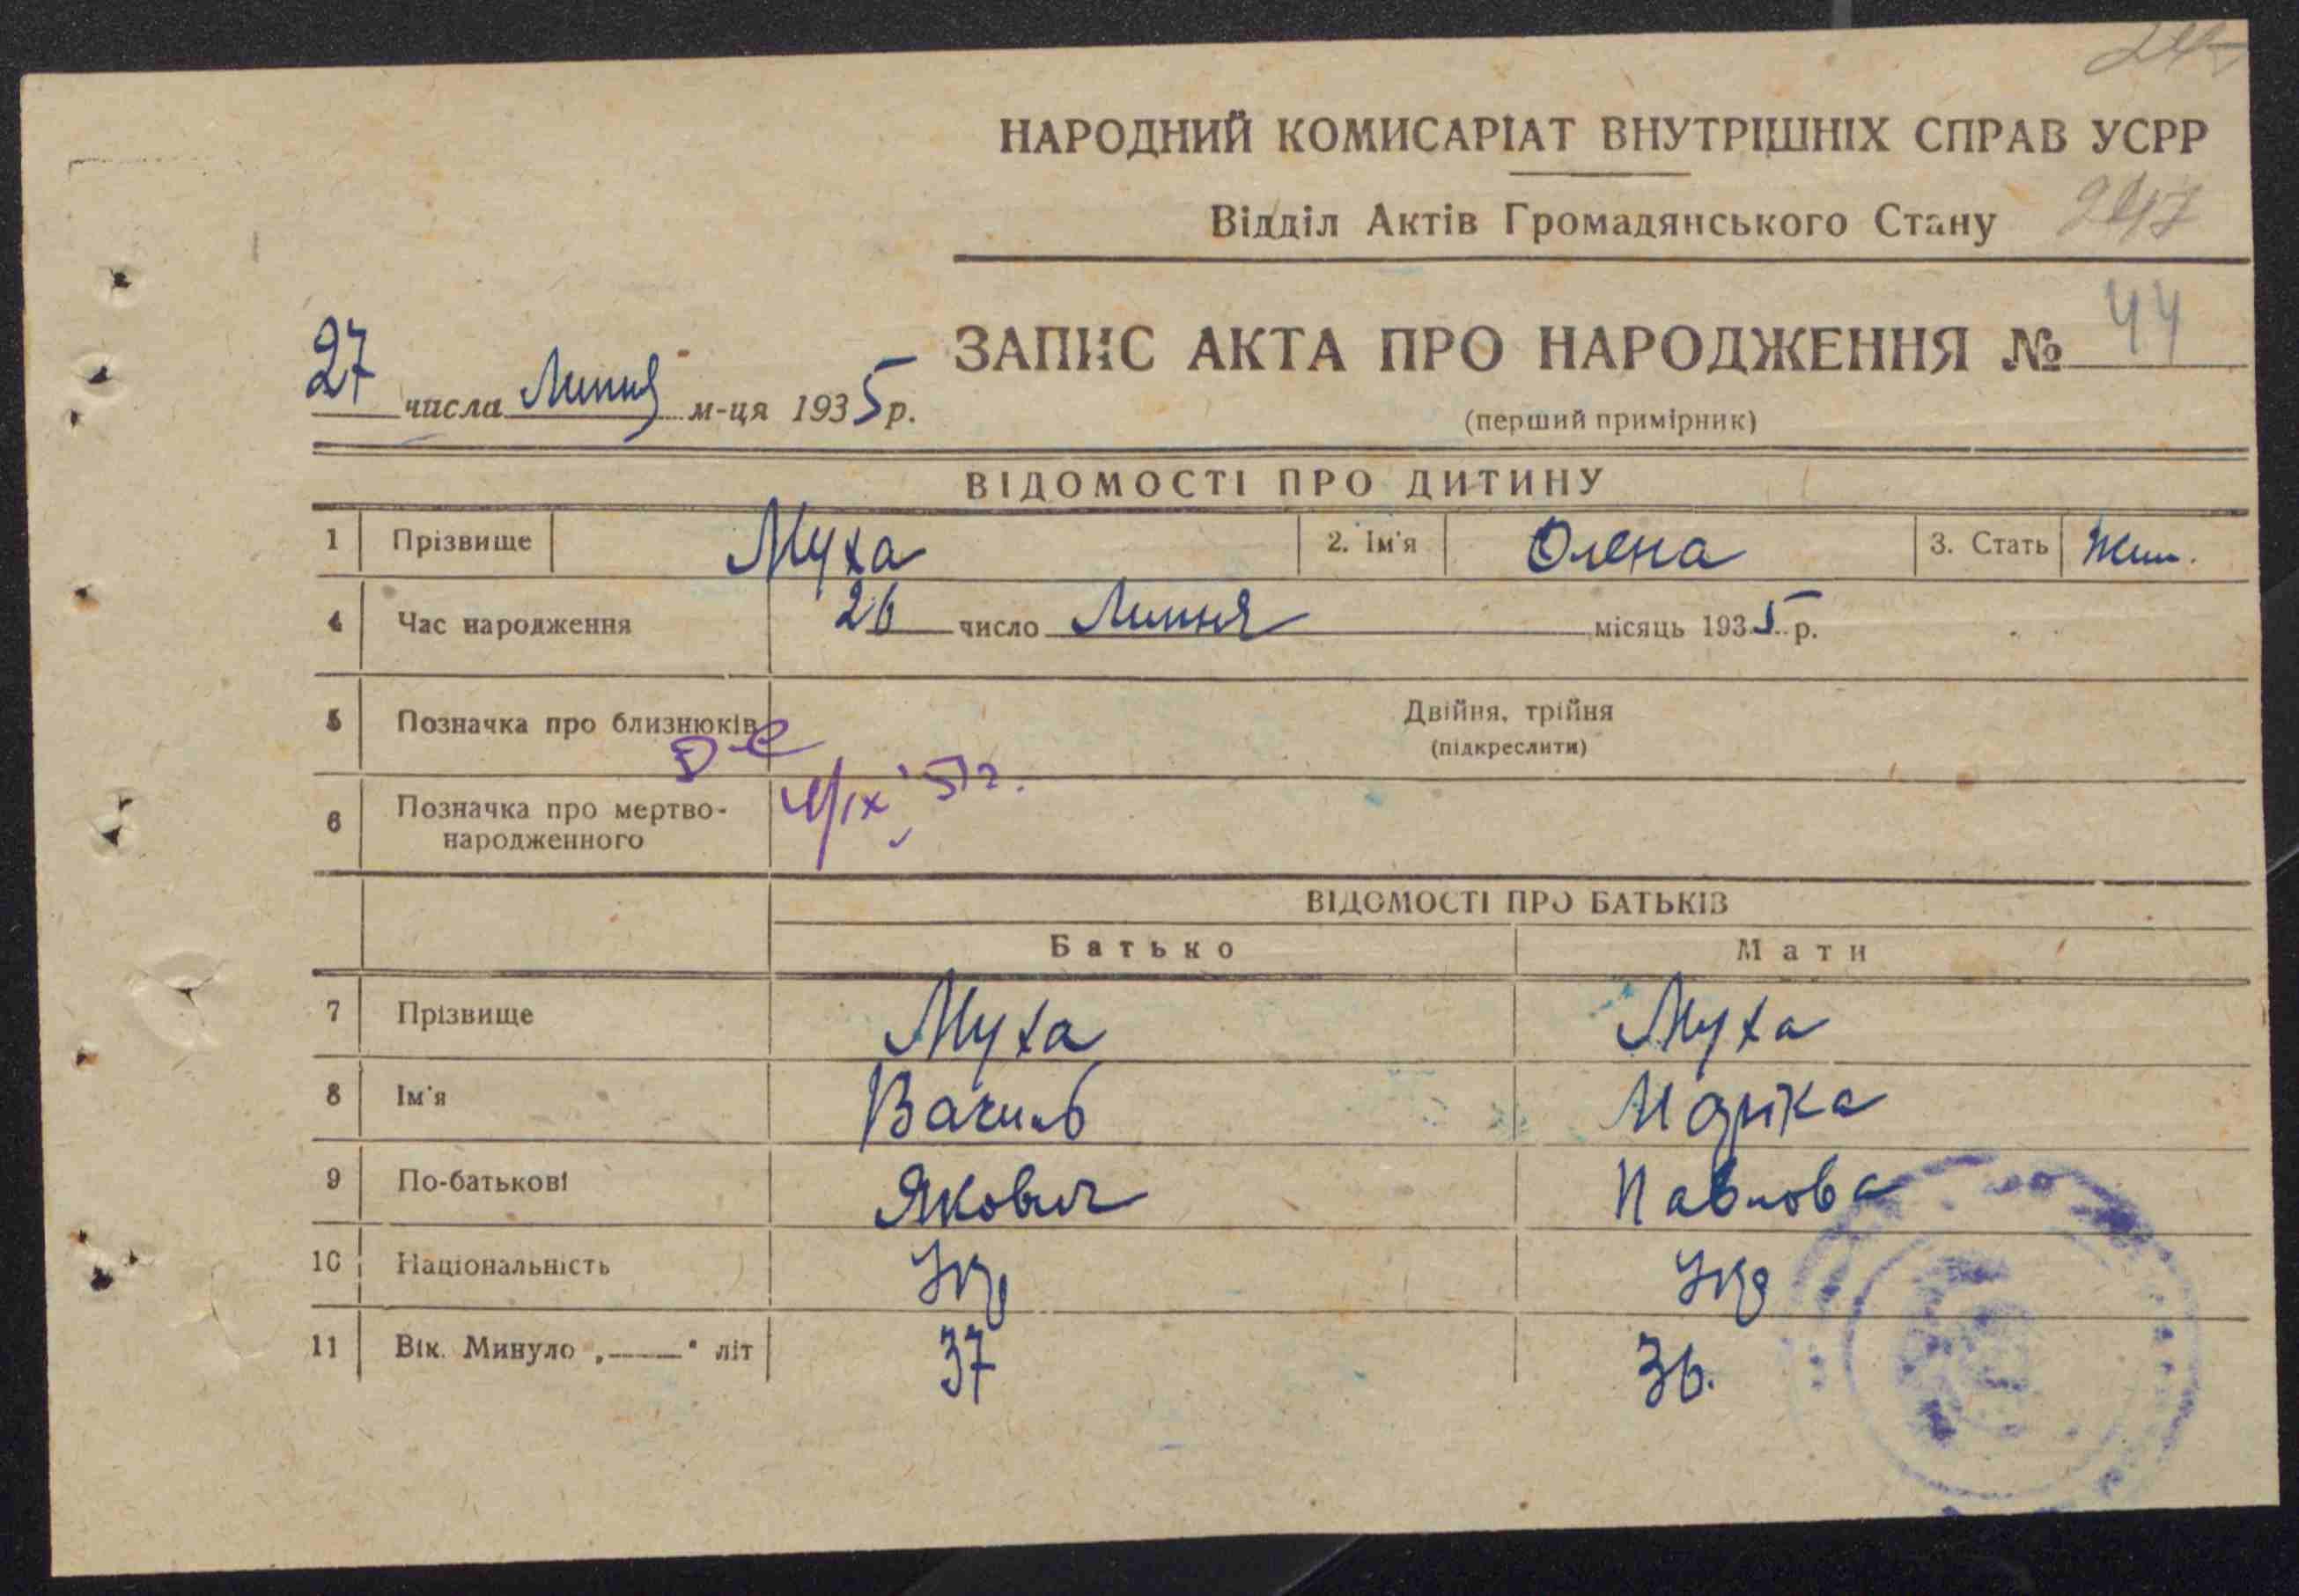 НАРОДНИЙ КОМИСАРІАТ ВНУТРІШНІХ СПРАВ УСРР
Відділ Актів Громадянського Стану 247
ЗАПИС АКТА ПРО НАРОДЖЕННЯ № 44
(перший примірник)
27 числа Липня м-ця 1935 р.
ВІДОМОСТІ ПРО ДИТИНУ
1 Прізвище Муха 2. Ім'я Олена 3. Стать Жін.
4 Час народження 26 число Липня місяць 1935 р.
5 Позначка про близнюків Двійня, трійня
(підкреслити)
6 Позначка про мертво-
народженного
ВІДОМОСТІ ПРО БАТЬКІВ
Батько Мати
7 Прізвище Муха Муха
8 Ім'я Василь Марійка
9 По-батькові Якович Павлова
10 Національність Укр Укр
11 Вік. Минуло „——" літ 37 36.